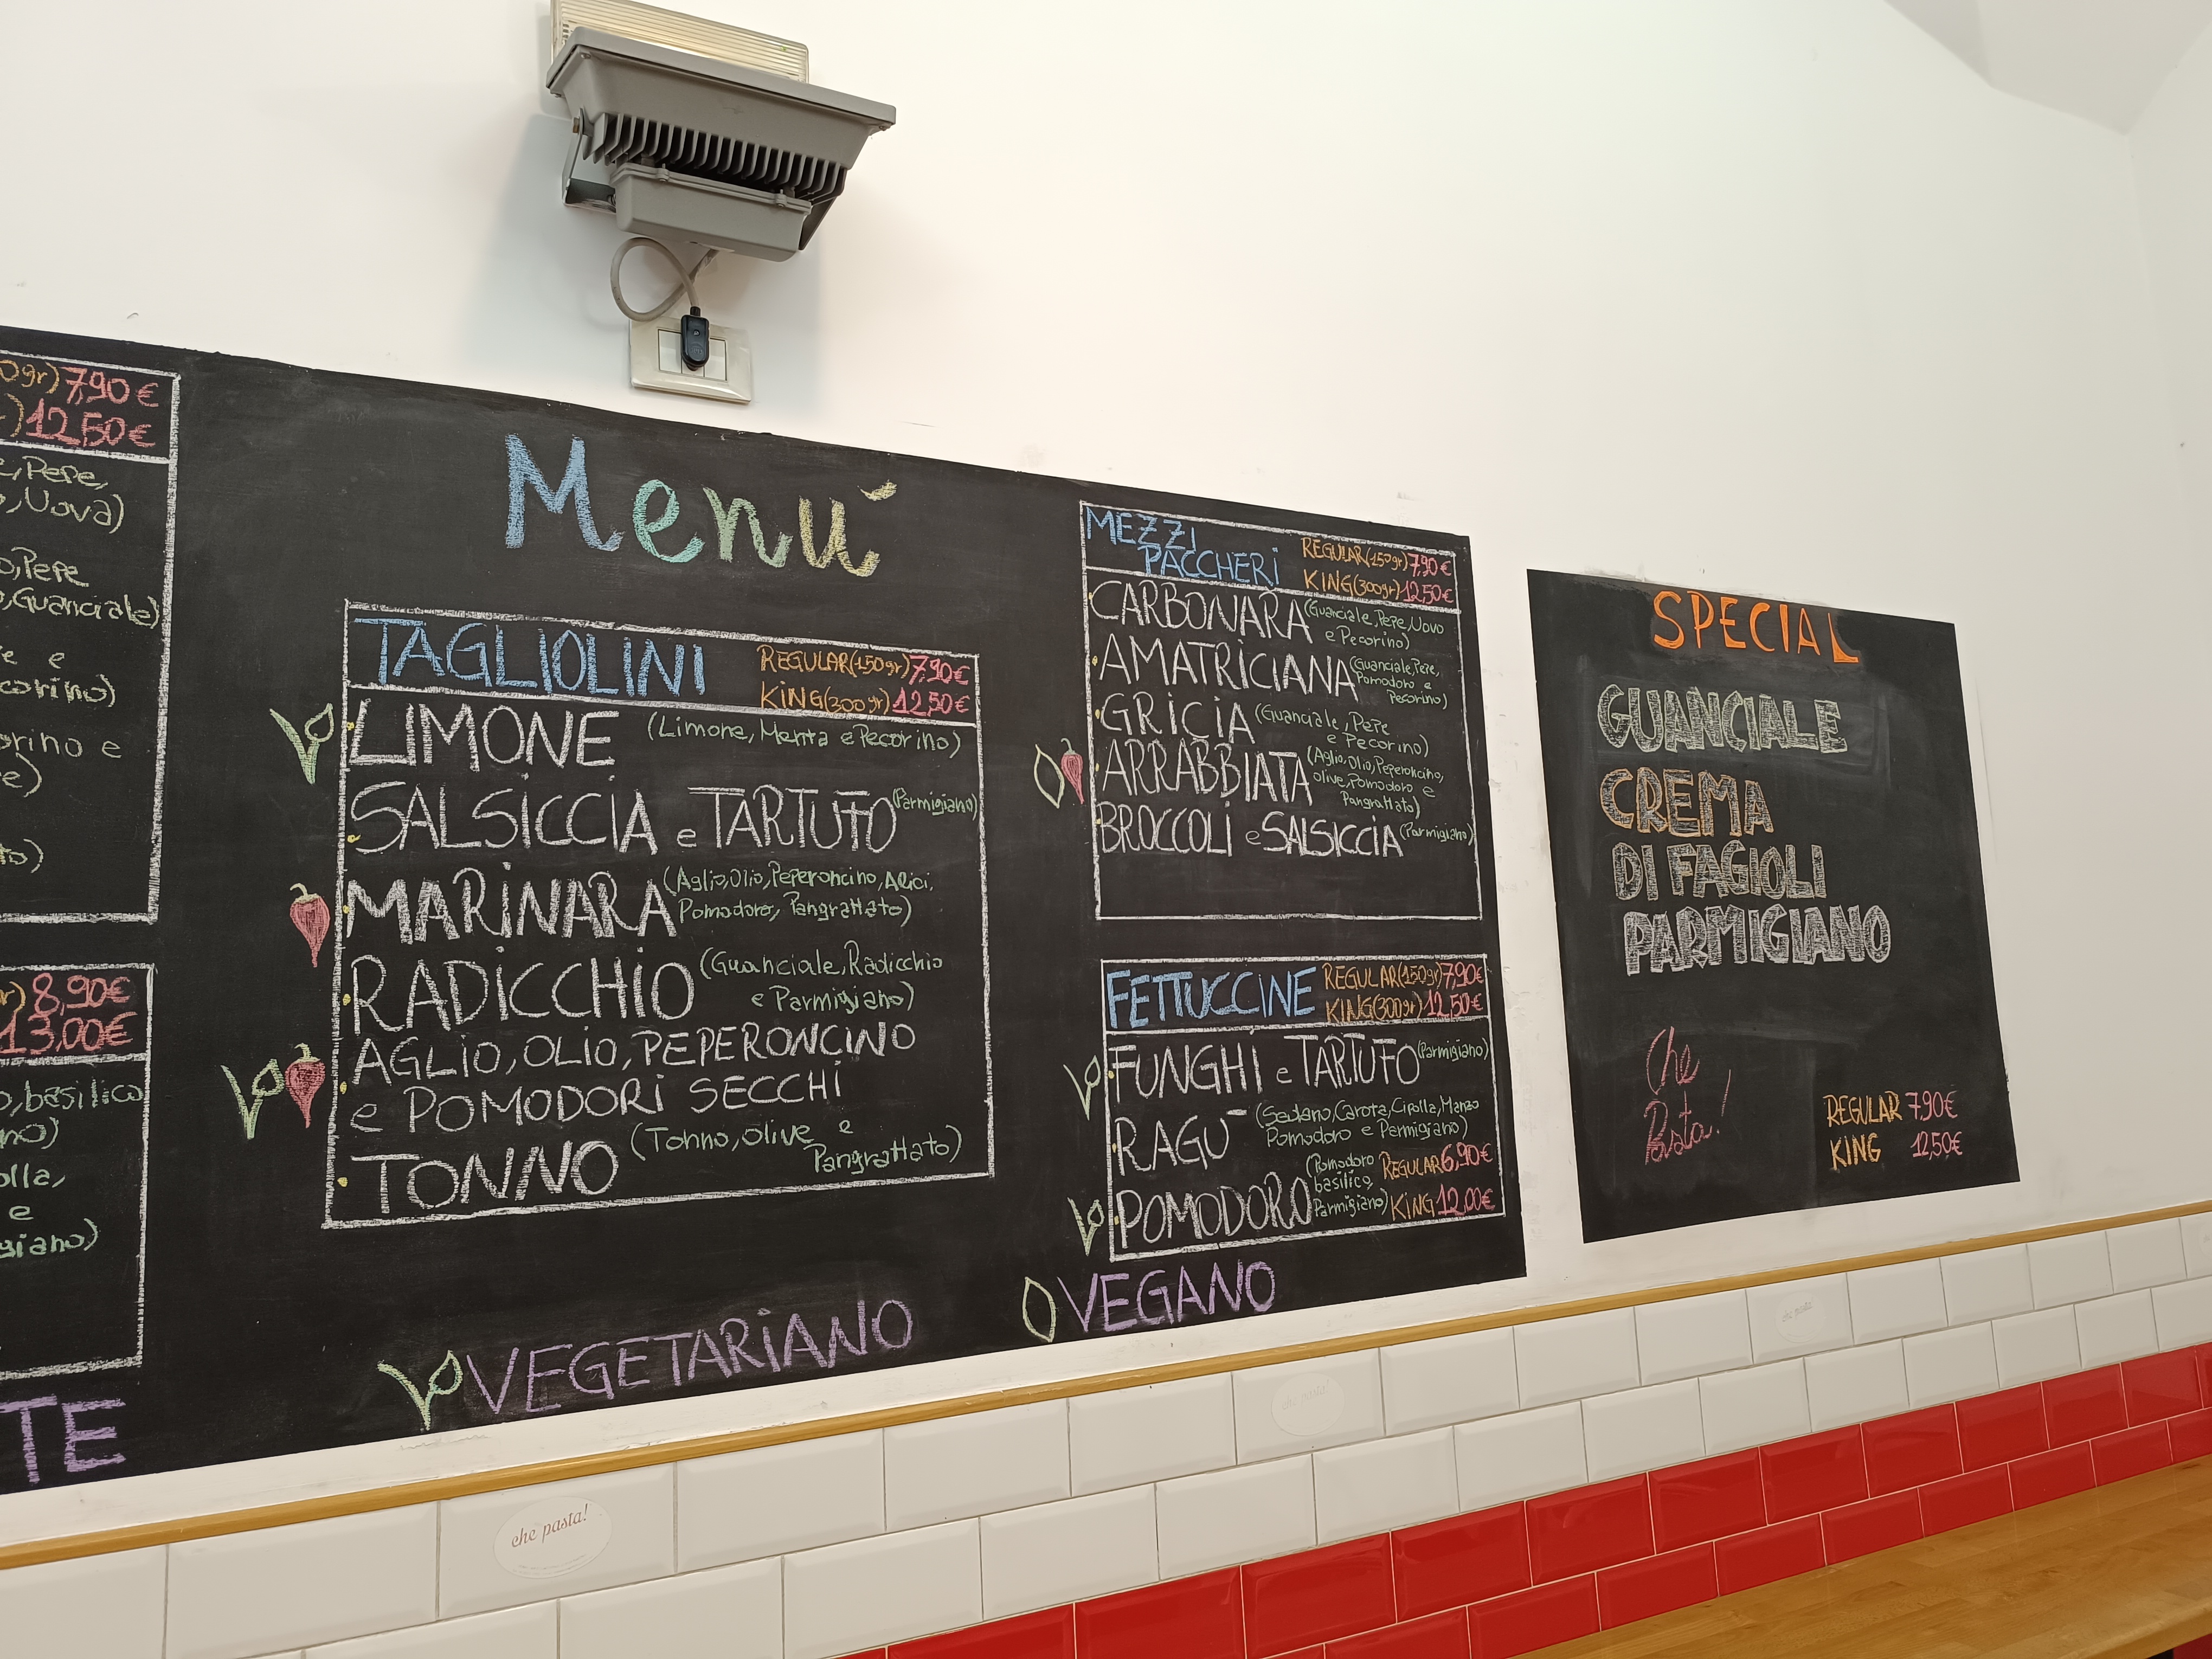 7,90€
12,50€
Pepe,
Uova)
Pepe
Guanciale)
e
e
8,90€
13,00€
basilico
e
TE
Menú
TAGLIOLINI
REGULAR(150gr) 7,90€
KING(300gr) 12,50€
LIMONE (Limone, Menta e Pecorino)
SALSICCIA e TARTUFO (Parmigiano)
MARINARA (Aglio, Olio, Peperoncino, Alici,
Pomodoro, Pangrattato)
RADICCHIO (Guanciale, Radicchio
e Parmigiano)
AGLIO, OLIO, PEPERONCINO
e POMODORI SECCHI
TONNO (Tonno, Olive e
Pangrattato)
VEGETARIANO
MEZZI
PACCHERI
REGULAR(150gr) 7,90€
KING(300gr) 12,50€
CARBONARA (Guanciale, Pepe, Uovo
e Pecorino)
AMATRICIANA (Guanciale, Pepe,
Pomodoro e
Pecorino)
GRICIA (Guanciale, Pepe
e Pecorino)
ARRABBIATA (Aglio, Olio, Peperoncino,
olive, Pomodoro e
Pangrattato)
BROCCOLI e SALSICCIA (Parmigiano)
FETTUCCINE
REGULAR(150gr) 7,90€
KING(300gr) 12,50€
FUNGHI e TARTUFO (Parmigiano)
RAGÚ (Sedano, Carota, Cipolla, Manzo
Pomodoro e Parmigiano)
POMODORO (Pomodoro
basilico,
Parmigiano)
REGULAR 6,90€
KING 12,00€
VEGANO
SPECIAL
GUANCIALE
CREMA
DI FAGIOLI
PARMIGIANO
Che
Pasta!
REGULAR 7,90€
KING 12,50€
che pasta!
che pasta!
che pasta!